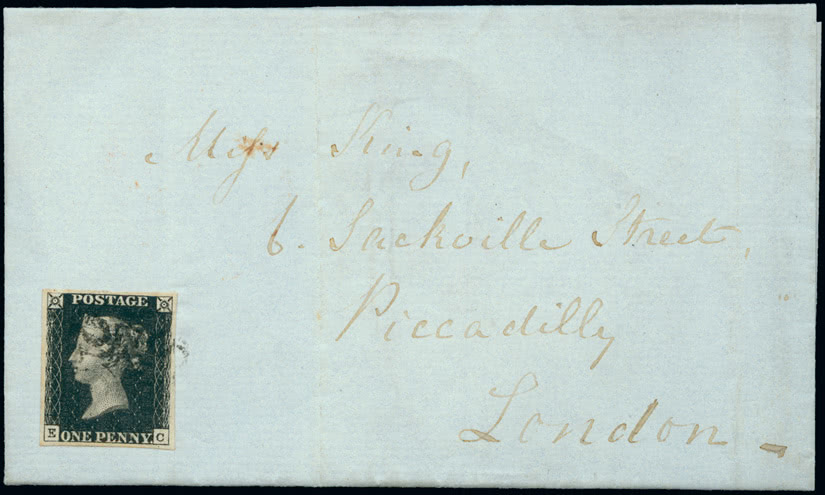 Miss King,
6. Sackville Street,
Piccadilly
London
POSTAGE
E ONE PENNY C